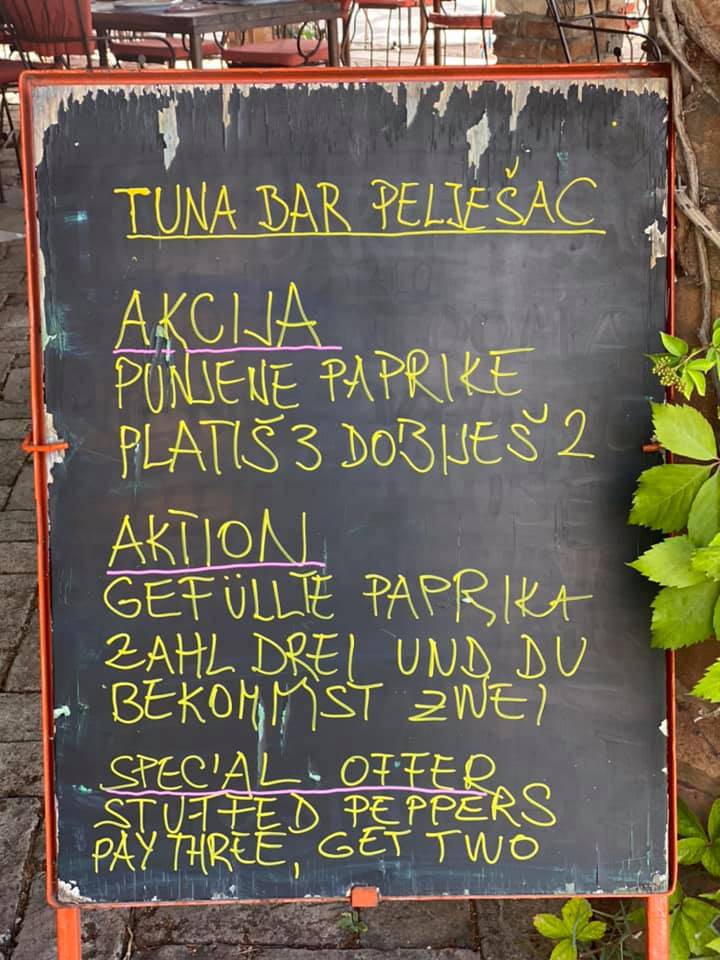 TUNA BAR PELJEŠAC
AKCIJA
PUNJENE PAPRIKE
PLATIŠ 3 DOBIJEŠ 2
AKTION
GEFÜLLTE PAPRIKA
ZAHL DREI UND DU
BEKOMMST ZWEI
SPECIAL OFFER
STUFFED PEPPERS
PAY THREE, GET TWO